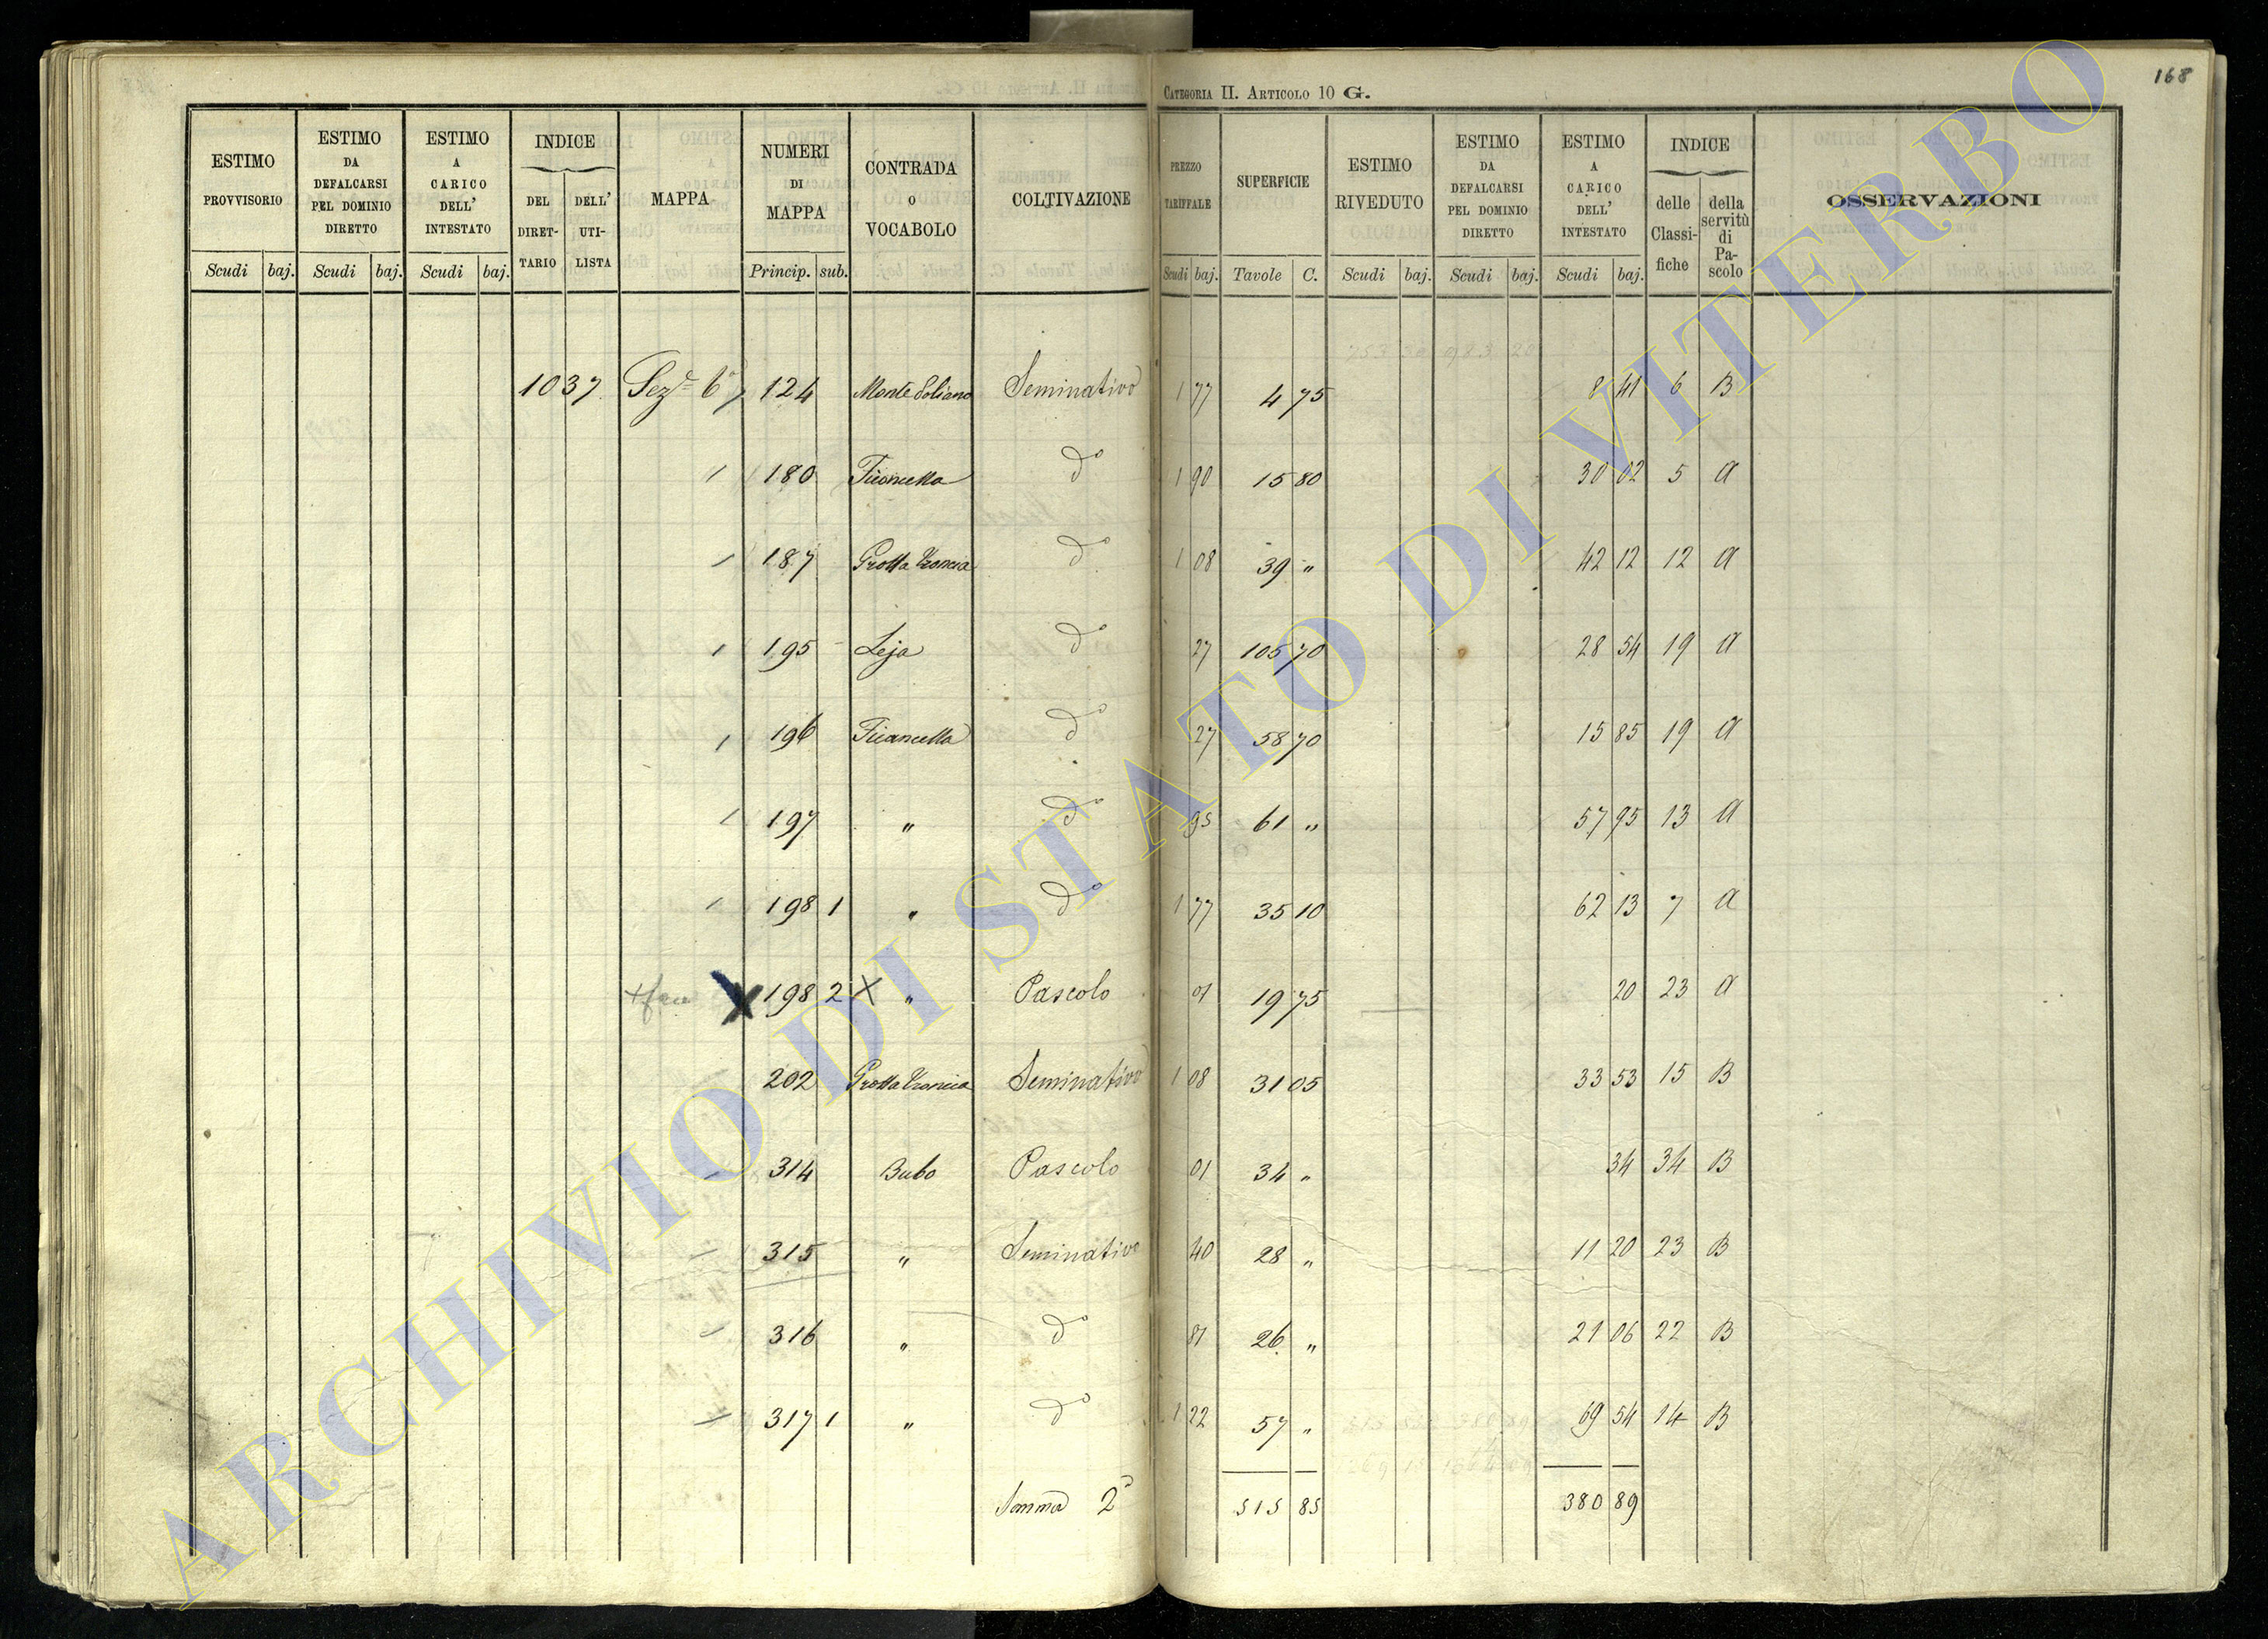 168
CATEGORIA II. ARTICOLO 10 G.
ESTIMO PROVVISORIO | ESTIMO DA DEFALCARSI PEL DOMINIO DIRETTO | ESTIMO A CARICO DELL' INTESTATO | INDICE DEL DIRET-TARIO | DELL' UTI-LISTA | MAPPA | NUMERI DI MAPPA | CONTRADA O VOCABOLO | COLTIVAZIONE | PREZZO TARIFFALE | SUPERFICIE | ESTIMO RIVEDUTO | ESTIMO DA DEFALCARSI PEL DOMINIO DIRETTO | ESTIMO A CARICO DELL' INTESTATO | INDICE delle Classi-fiche | della servitù di Pa-scolo | OSSERVAZIONI
Scudi baj. Scudi baj. Scudi baj. Princip. sub. Scudi baj. Tavole C. Scudi baj. Scudi baj. Scudi baj.
1037 Sez.e 6a 124 Monte Soliano Seminativo 1 77 4 75 8 41 6 B
180 Ficoncella do 1 90 15 80 30 02 5 A
187 Grotta Troncia do 1 08 39 " 42 12 12 A
195 Leja do 27 105 70 28 54 19 A
196 Ficoncella do 27 58 70 15 85 19 A
197 " do 95 61 " 57 95 13 A
198 1 " do 1 77 35 10 62 13 7 A
X 198 2 X " Pascolo 01 19 75 20 23 A
202 Grotta Troncia Seminativo 1 08 31 05 33 53 15 B
314 Bubo Pascolo 01 34 " 34 34 B
315 " Seminativo 40 28 " 11 20 23 B
316 " do 81 26 " 21 06 22 B
317 1 " do 1 22 57 " 69 54 14 B
Somma 2a 515 85 380 89
ARCHIVIO DI STATO DI VITERBO